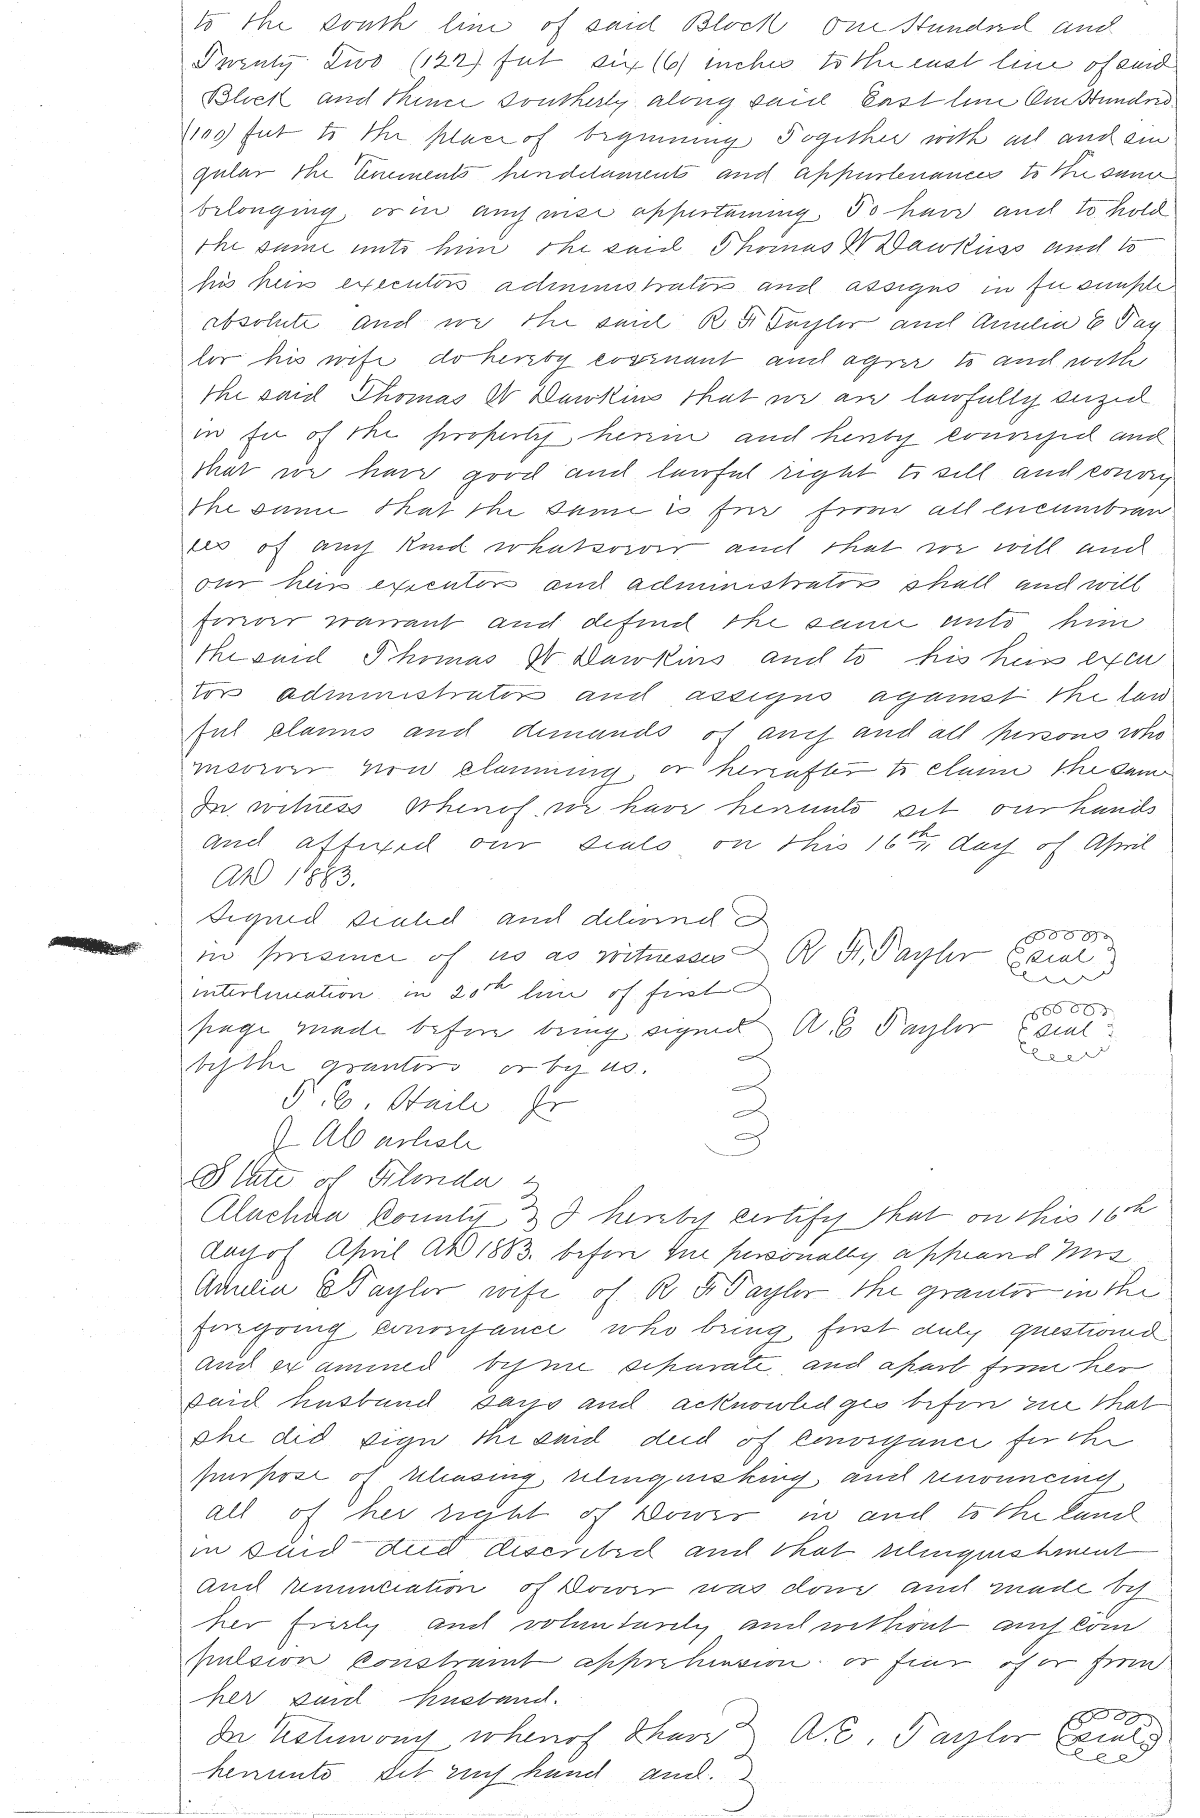 to the south line of said Block One Hundred and
Twenty Two (122) feet six (6) inches to the east line of said
Block and thence Southerly along said East line One Hundred
(100) feet to the place of beginning Together with all and sin
gular the tenements hereditaments and appurtenances to the same
belonging or in any wise appertaining To have and to hold
the same unto him the said Thomas W Dawkins and to
his heirs executors administrators and assigns in fee simple
absolute and we the said R F Taylor and Amelia E Tay
lor his wife do hereby covenant and agree to and with
the said Thomas W Dawkins that we are lawfully seized
in fee of the property herein and hereby conveyed and
that we have good and lawful right to sell and convey
the same that the same is free from all encumbran
ces of any kind whatsoever and that we will and
our heirs executors and administrators shall and will
forever warrant and defend the same unto him
the said Thomas W Dawkins and to his heirs execu
tors administrators and assigns against the law
ful claims and demands of any and all persons who
msoever now claiming or hereafter to claim the same
In witness whereof we have hereunto set our hands
and affixed our seals on this 16th day of April
AD 1883.
Signed sealed and delivered
in presence of us as witnesses R F. Taylor seal
interlineation in 20th line of first
page made before being signed A. E Taylor seal
by the grantors or by us.
T. E. Haile Jr
J A Carlisle
State of Florida
Alachua County I hereby certify that on this 16th
day of April AD 1883. before me personally appeared Mrs
Amelia E Taylor wife of R F Taylor the grantor in the
foregoing conveyance who being first duly questioned
and examined by me separate and apart from her
said husband says and acknowledges before me that
she did sign the said deed of conveyance for the
purpose of releasing relinquishing and renouncing
all of her right of Dower in and to the land
in said deed described and that relinquishment
and renunciation of Dower was done and made by
her freely and voluntarily and without any com
pulsion constraint apprehension or fear of or from
her said husband.
In Testimony whereof I have A. E. Taylor seal
hereunto set my hand and.